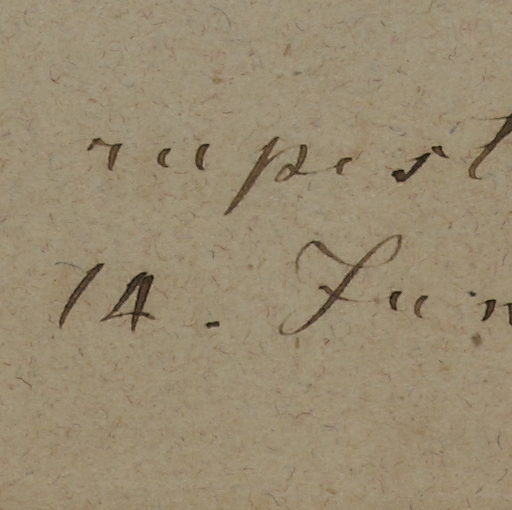 rupest
14. Jun